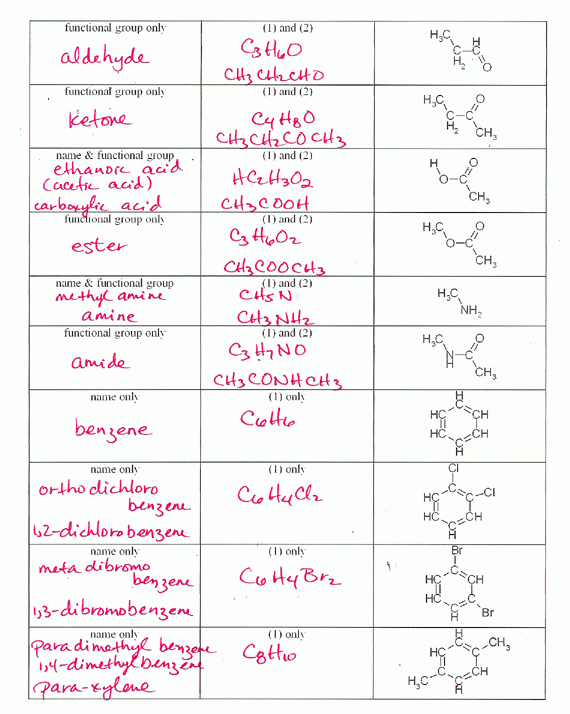 functional group only
aldehyde
(1) and (2)
C3H6O
CH3CH2CHO
H3C
C
H2
H
C
O
functional group only
ketone
(1) and (2)
C4H8O
CH3CH2COCH3
H3C
O
C
C
H2
CH3
name & functional group
ethanoic acid
(acetic acid)
carboxylic acid
(1) and (2)
HC2H3O2
CH3COOH
H
O
O
C
CH3
functional group only
ester
(1) and (2)
C3H6O2
CH3COOCH3
H3C
O
O
C
CH3
name & functional group
methyl amine
amine
(1) and (2)
CH5N
CH3NH2
H3C
NH2
functional group only
amide
(1) and (2)
C3H7NO
CH3CONHCH3
H3C
O
N
H
C
CH3
name only
benzene
(1) only
C6H6
H
C
HC
CH
HC
CH
C
H
name only
orthodichloro
benzene
1,2-dichlorobenzene
(1) only
C6H4Cl2
Cl
C
HC
C
Cl
HC
CH
C
H
name only
meta dibromo
benzene
1,3-dibromobenzene
(1) only
C6H4Br2
Br
C
HC
CH
HC
C
C
H
Br
name only
paradimethyl benzene
1,4-dimethylbenzene
para-xylene
(1) only
C8H10
H
C
CH3
HC
C
C
CH
H3C
C
H